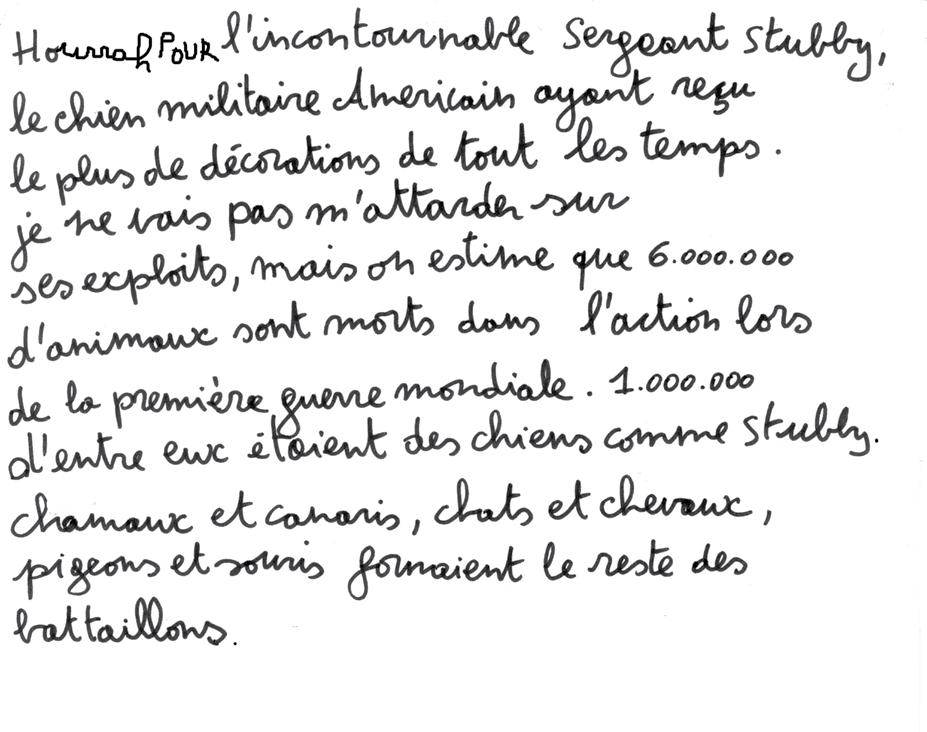 Hourrah POUR l'incontournable Sergeant Stubby,
le chien militaire Americain ayant reçu
le plus de décorations de tout les temps.
je ne vais pas m'attarder sur
ses exploits, mais on estime que 6.000.000
d'animaux sont morts dans l'action lors
de la première guerre mondiale. 1.000.000
d'entre eux étaient des chiens comme Stubby.
chamaux et canaris, chats et chevaux,
pigeons et souris formaient le reste des
battaillons.